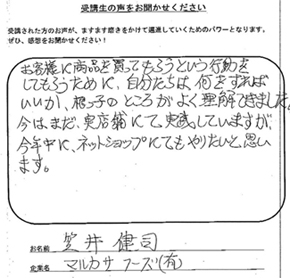 受講生の声をお聞かせください
受講された方のお声が、ますます磨きをかけて邁進していくためのパワーとなります。
ぜひ、感想をお聞かせください！
お客様に商品を買ってもらうという行動を
してもらうために、自分たちは何をすれば
いいか、根っ子のところがよく理解できました。
今は、まだ、実店舗にて実践していますが、
今年中に、ネットショップにてもやりたいと思い
ます。
お名前 笠井 健司
企業名 マルカサフーズ(有)